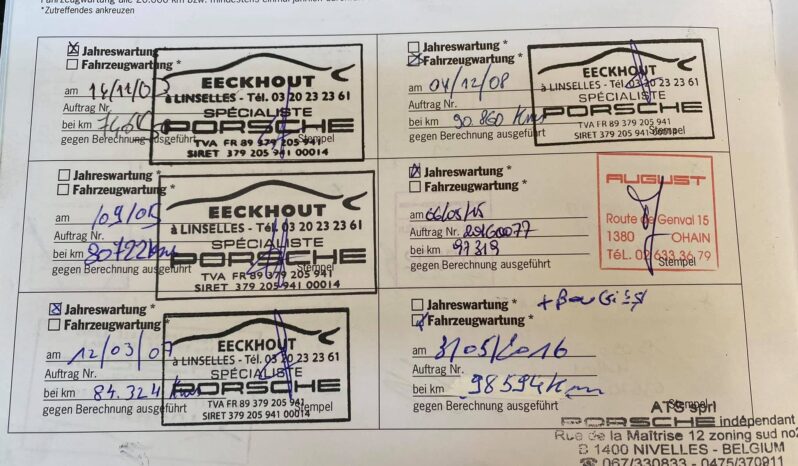 *Zutreffendes ankreuzen
Jahreswartung
Fahrzeugwartung
am 14/11/0
Auftrag Nr.
bei km
gegen Berechnung ausgeführt
Stempel
EECKHOUT
à LINSELLES - Tél. 03 20 23 23 61
SPÉCIALISTE
PORSCHE
TVA FR 89 379 205 941
SIRET 379 205 941 00014
Jahreswartung *
Fahrzeugwartung *
am 04/12/08
Auftrag Nr.
bei km 90.860 Kms
gegen Berechnung ausgeführt
Stempel
EECKHOUT
à LINSELLES - Tél. 03 20 23 23 61
SPÉCIALISTE
PORSCHE
TVA FR 89 379 205 941
SIRET 379 205 941 00014
Jahreswartung *
Fahrzeugwartung *
am /09/05
Auftrag Nr.
bei km 80722 kms
gegen Berechnung ausgeführt
Stempel
EECKHOUT
à LINSELLES - Tél. 03 20 23 23 61
SPÉCIALISTE
PORSCHE
TVA FR 89 379 205 941
SIRET 379 205 941 00014
Jahreswartung *
Fahrzeugwartung *
am
Auftrag Nr.
bei km 97319
gegen Berechnung ausgeführt
Stempel
AUGUST
Route de Genval 15
1380 OHAIN
TéL. 02 633 36 79
Jahreswartung *
Fahrzeugwartung *
am 12/03/07
Auftrag Nr.
bei km 84.324 Kms
gegen Berechnung ausgeführt
Stempel
EECKHOUT
à LINSELLES - Tél. 03 20 23 23 61
SPÉCIALISTE
PORSCHE
TVA FR 89 379 205 941
SIRET 379 205 941 00014
Jahreswartung *
Fahrzeugwartung *
am 31/05/2016
Auftrag Nr.
bei km 98594 Km
gegen Berechnung ausgeführt
Stempel
ATS sprl
PORSCHE indépendant
Rue de la Maîtrise 12 zoning sud no2
B 1400 NIVELLES - BELGIUM
☎ 067/330833 - 0475/370911